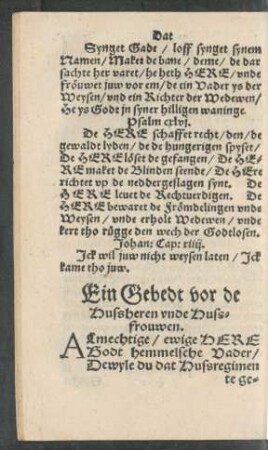 Dat
Synget Gade / loff synget synem
Namen / Maket de bane / deme / de dar
sachte her varet / he heth HERE / vnde
fröuwet juw vor em / de ein Vader ys der
Weysen / vnd ein Richter der Wedewen /
He ys Godt jn syner hilligen waninge.
Psalm cxlvj.
De HERE schaffet recht / den / de
gewaldt lyden / de de hungerigen spyset /
De HERE löset de gefangen / De HE-
RE maket de Blinden seende / De HEre
richtet vp de neddergeslagen synt. De
HERE leuet de Rechtuerdigen. De
HERE bewaret de Frömdelingen vnde
Weysen / vnde erholt Wedewen / vnde
kert tho rügge den wech der Godtlosen.
Johan: Cap: xiiij.
Jck wil juw nicht weysen laten / Jck
kame tho juw.
Ein Gebedt vor de
Hussheren vnde Huss-
frouwen.
ALmechtige / ewige HERE
Godt hemmelsche Vader /
Dewyle du dat Hussregimen
te ge-